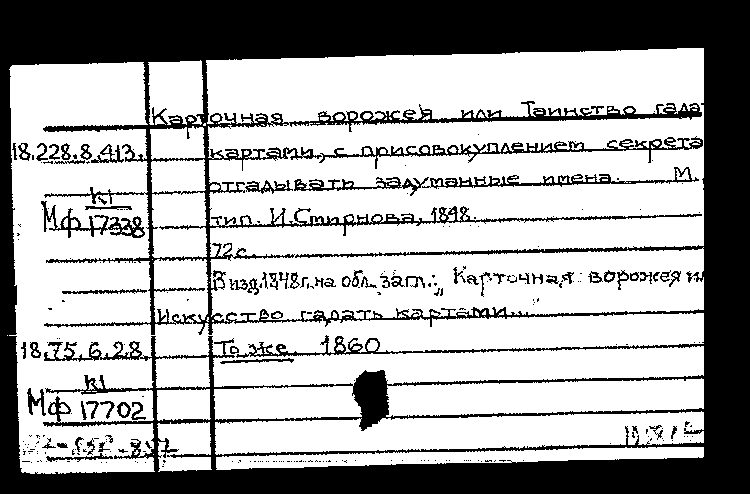 Карточная ворожея или Таинство гадат
18.228.8.413. картами, с присовокуплением секрета
отгадывать задуманные имена. М.,
К1
Мф 17338 тип. И.Смирнова, 1848.
72с.
В изд.1848г. на обл. загл.: „Карточная ворожея ил
Искусство гадать картами..."
18.75.6.28. То же. 1860
К1
Мф 17702